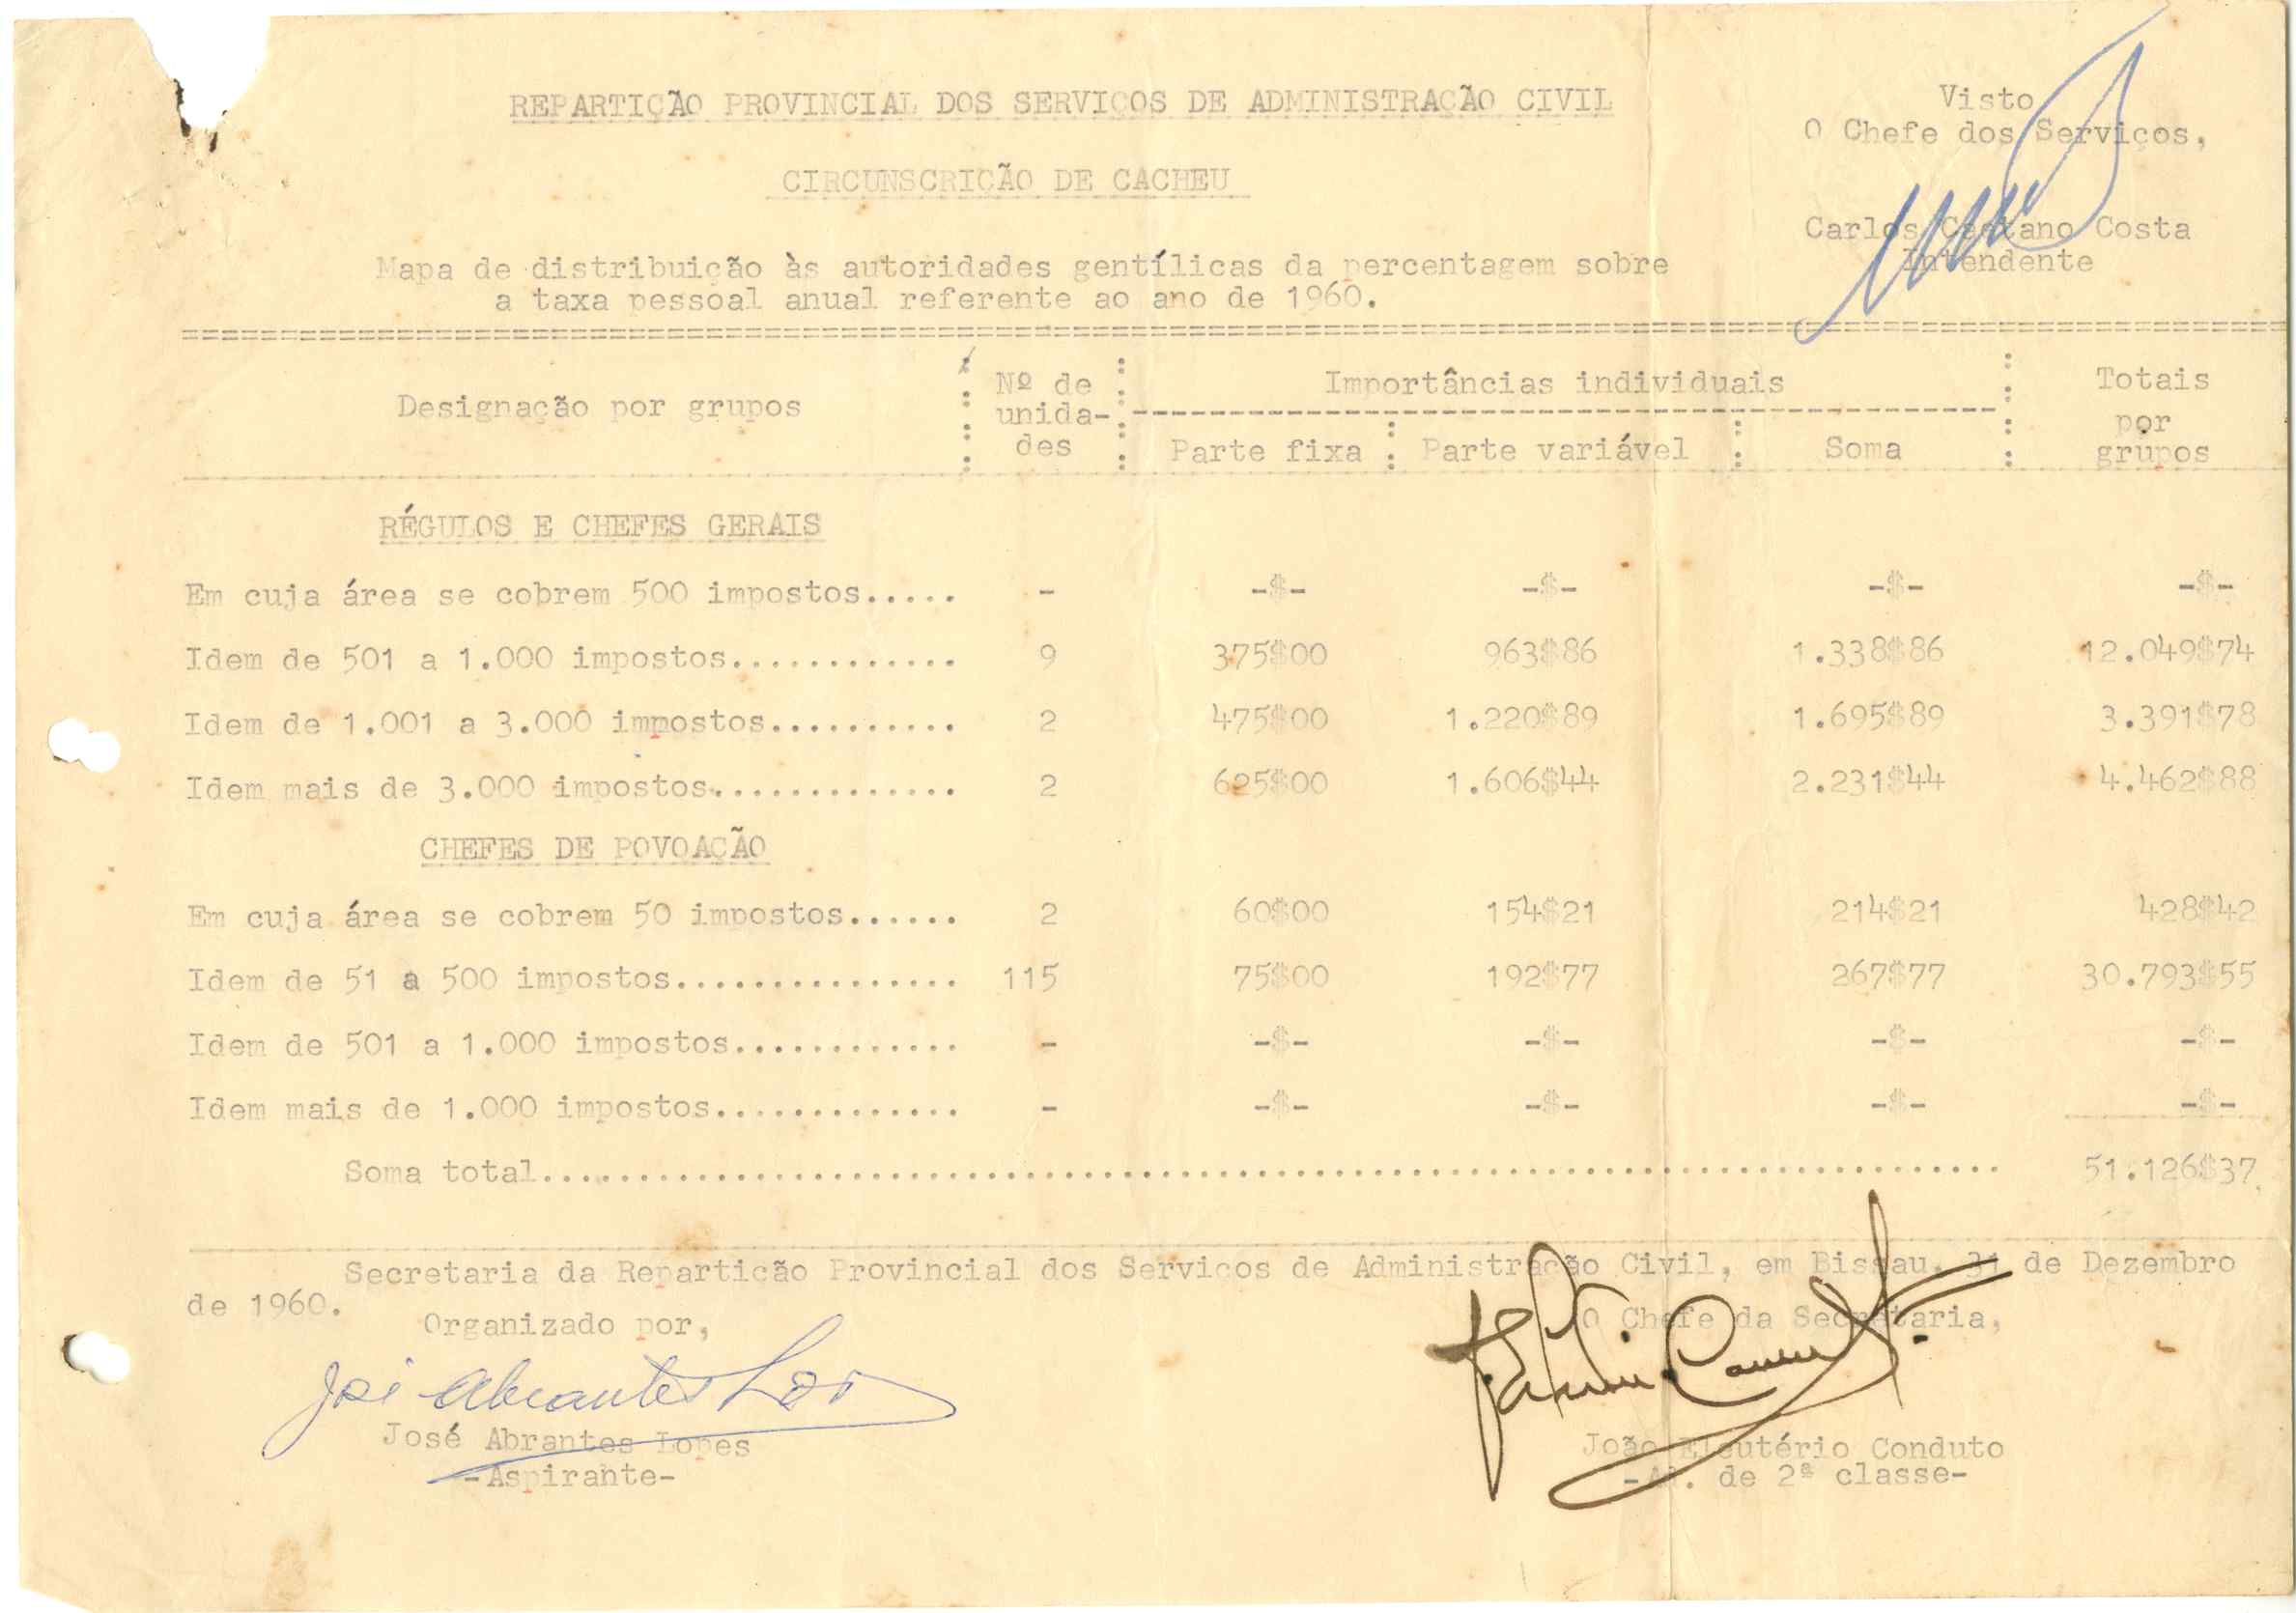 REPARTIÇÃO PROVINCIAL DOS SERVIÇOS DE ADMINISTRAÇÃO CIVIL
Visto
O Chefe dos Serviços,
CIRCUNSCRIÇÃO DE CACHEU
Carlos Caetano Costa
Intendente
Mapa de distribuição às autoridades gentílicas da percentagem sobre
a taxa pessoal anual referente ao ano de 1960.
Designação por grupos : Nº de unida-des : Importâncias individuais : Totais por grupos
Parte fixa : Parte variável : Soma
RÉGULOS E CHEFES GERAIS
Em cuja área se cobrem 500 impostos..... - -$- -$- -$- -$-
Idem de 501 a 1.000 impostos............ 9 375$00 963$86 1.338$86 12.049$74
Idem de 1.001 a 3.000 impostos.......... 2 475$00 1.220$89 1.695$89 3.391$78
Idem mais de 3.000 impostos............. 2 625$00 1.606$44 2.231$44 4.462$88
CHEFES DE POVOAÇÃO
Em cuja área se cobrem 50 impostos...... 2 60$00 154$21 214$21 428$42
Idem de 51 a 500 impostos............... 115 75$00 192$77 267$77 30.793$55
Idem de 501 a 1.000 impostos............ - -$- -$- -$- -$-
Idem mais de 1.000 impostos............. - -$- -$- -$- -$-
Soma total........................................................................... 51.126$37
Secretaria da Repartição Provincial dos Serviços de Administração Civil, em Bissau, 31 de Dezembro
de 1960.
Organizado por,
O Chefe da Secretaria,
José Abrantes Lopes
José Abrantes Lopes
-Aspirante-
João Eleutério Conduto
-Ad. de 2ª classe-